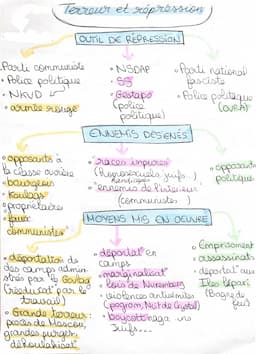 Terreur et répression
OUTIL DE RÉPRESSION
Parti communiste
• Police politique
• NKVD
• armée rouge
• NSDAP
• SS
• Gestapo
(police
politique)
• Parti national
fasciste
• Police politique
(OVRA)
ENNEMIS DÉSIGNÉS
• opposants à
la classe ouvrière
• bourgeois
• koulags
• propriétaires
• faux
communistes
• "races impures"
(homosexuels, juifs...)
handicapés
• "ennemis de l'intérieur"
(communistes)
• opposants
politiques
MOYENS MIS EN OEUVRE
• déportation ds
des camps admin-
istrés par le Goulag
(rééducat° par le
travail)
• Grande terreur:
procès de Moscou,
grandes purges,
dékoulakisat°
• déportat° en
camps
• marginalisat°
• lois de Nuremberg
• violences antisémites
• pogrom, Nuit de Cristal)
• boycott maga. ns
Juifs...
• Emprisonnent
• assassinats
• déportat° aux
Iles Lipari
(bagne de
feu)